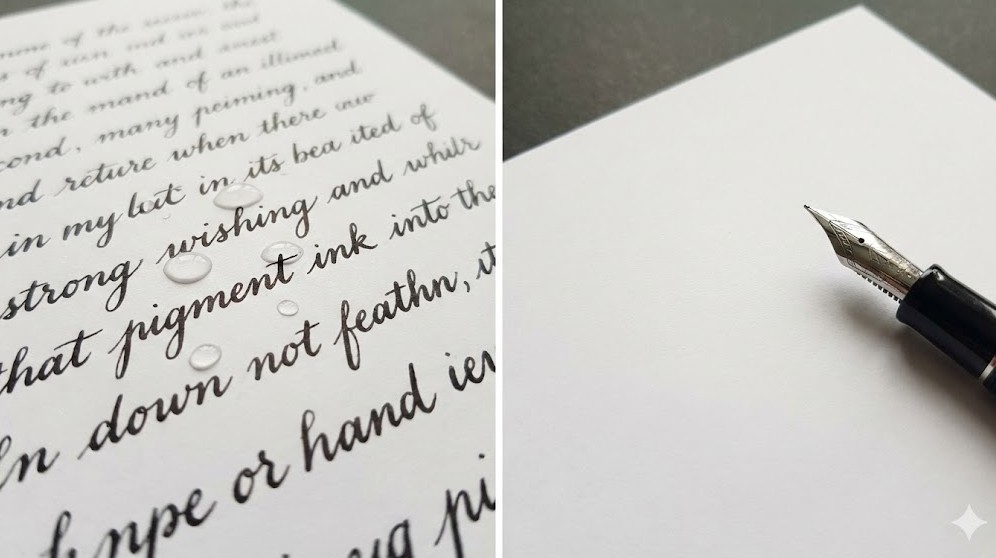 of the
of and
ng to with and
the mand of an illimed
cond, many peiming, and
nd reture when there
in my but in its bea ited of
strong wishing and whilr
that pigment ink into the
down not feathn, it
or hand
pi